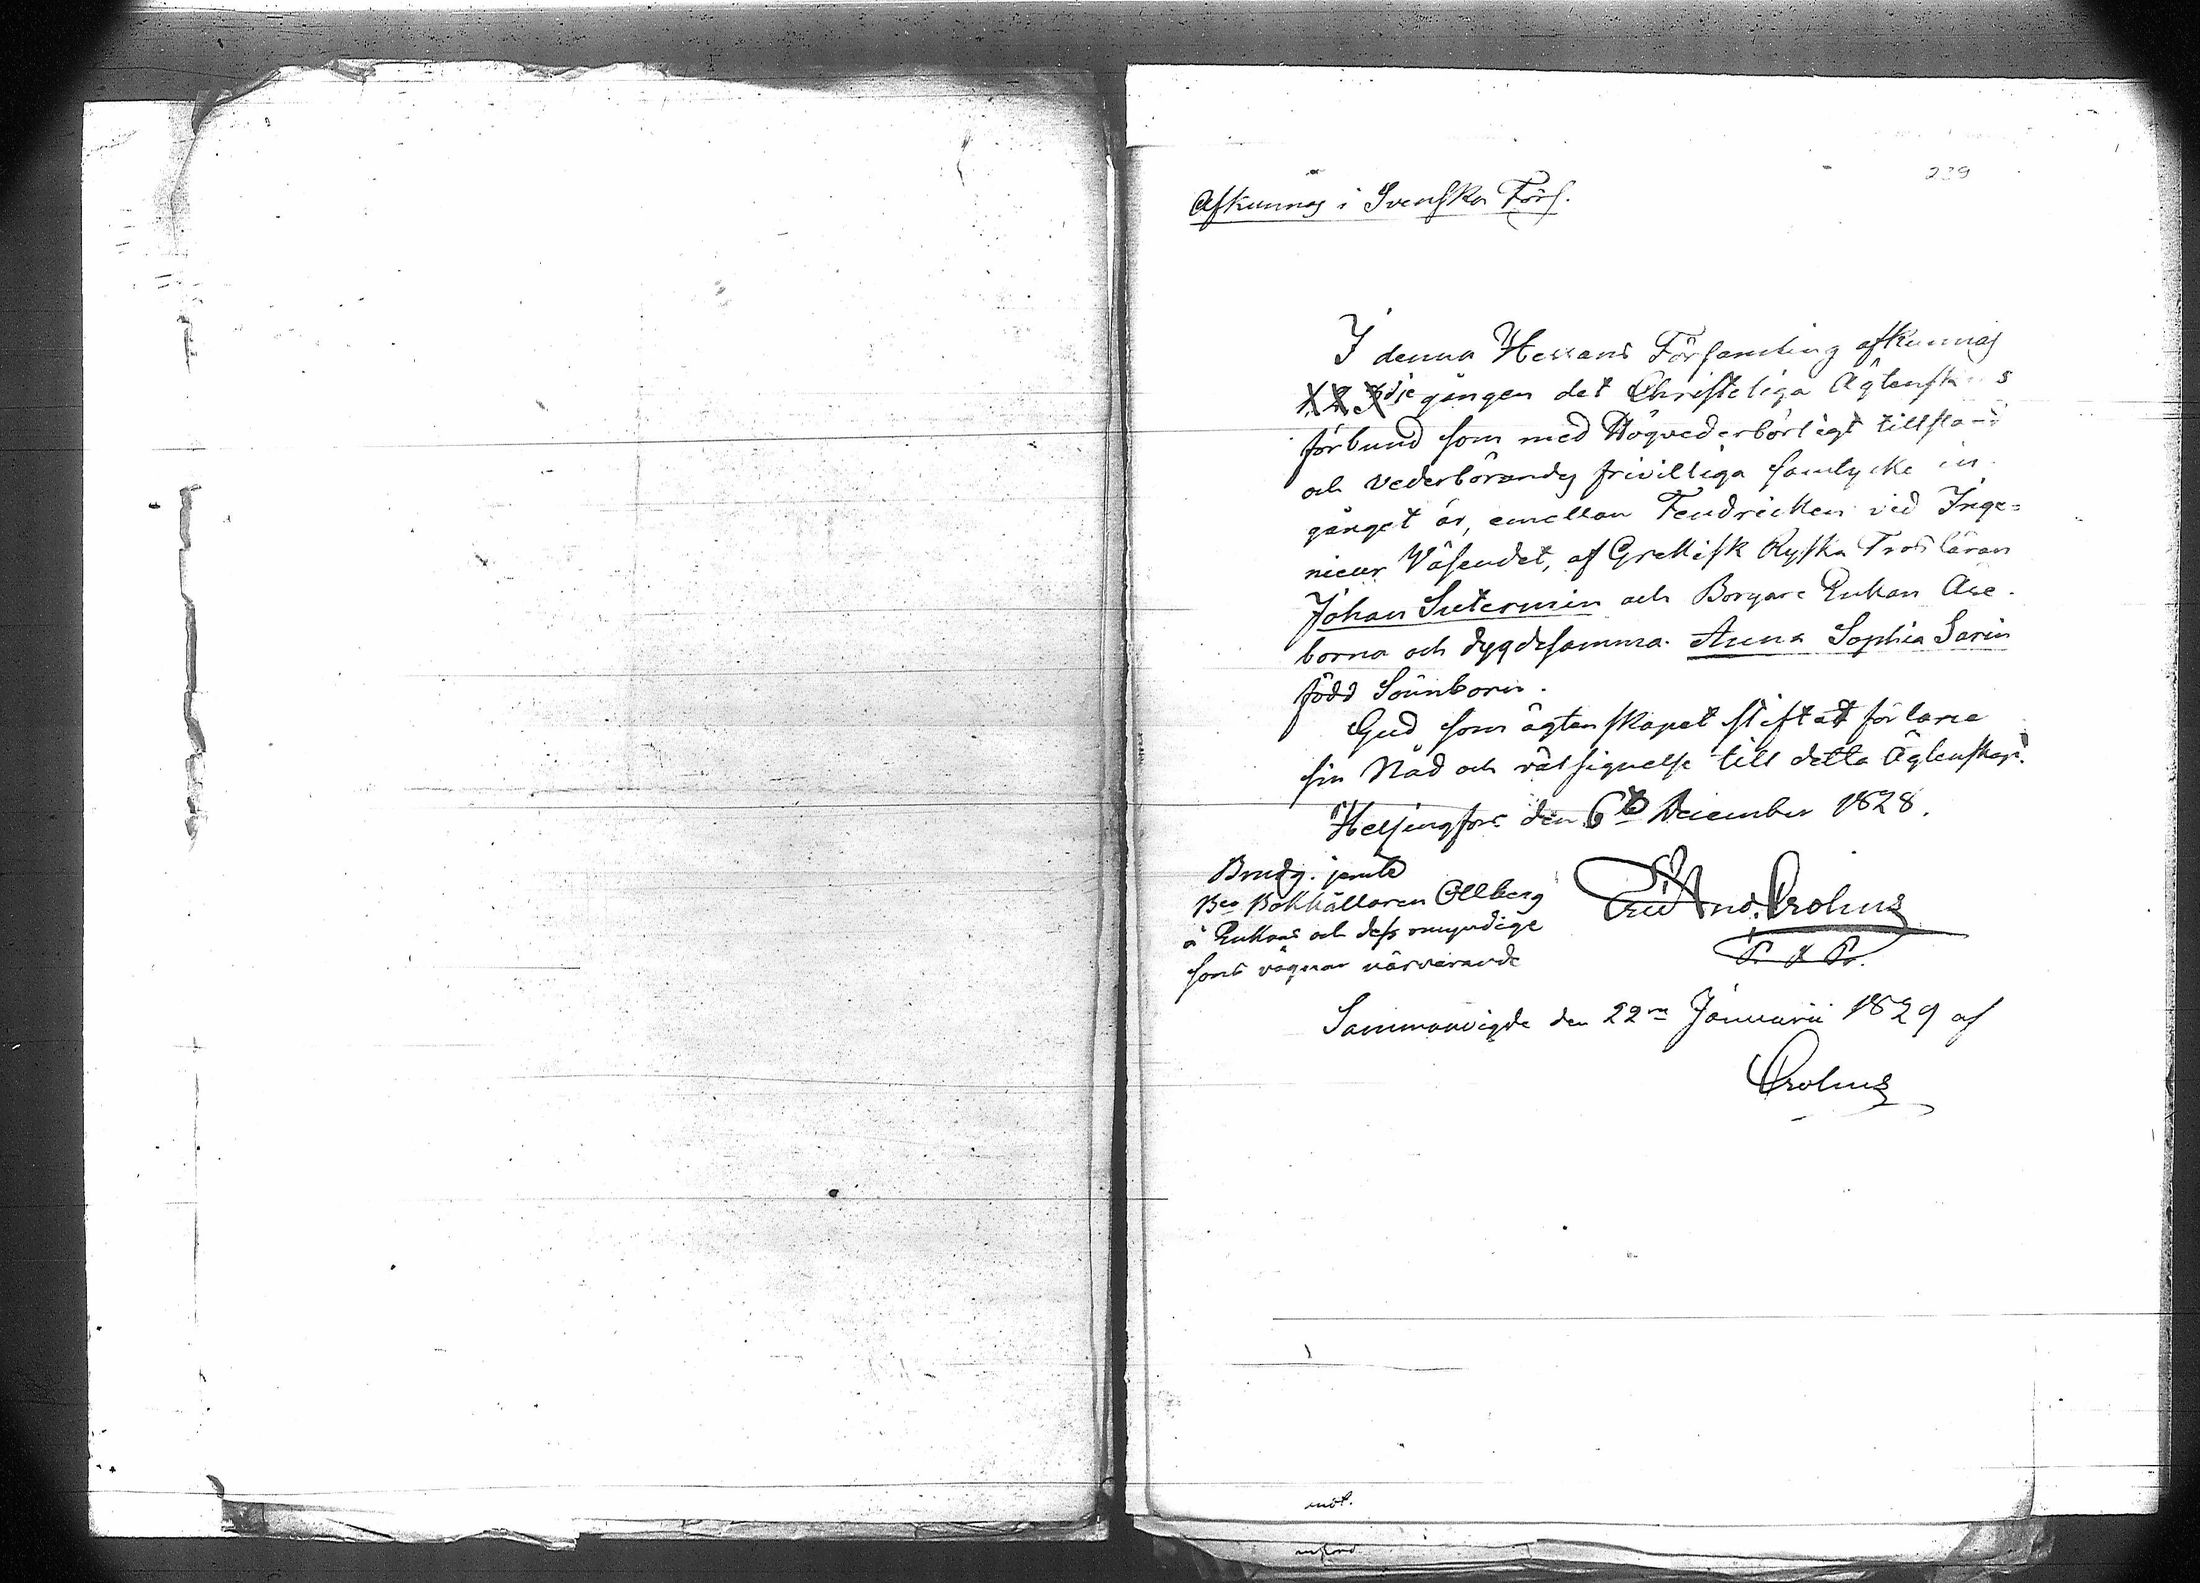 239
Afkunnas i Svenska Förs.
I denna Herrans Församling afkunnas
1. 2. 3dje gången det Christeliga Ägtenska s
förbund som med Högvederbörligt tillstånd
och Vederbörandes frivilliga samtycke in
gånget är, emellan Fendricken vid Inge=
nieur Väsendet, af Grekisk Ryska Trosläran
Johan Sutermin och Borgare Enkan Äre
borna och dygdesamma Anna Sophia Sarin
född Sönnborn.
Gud som ägtenskapet stiftat förläne
sin Nåd och välsignelse till detta Ägtenskap.
Helsingfors den 6te December 1828.
Brudg. jemte
Bokhållaren Ollberg
å Enkans och dess omyndige
sons vägnar närvarande
And. Crolius
Sammanvigde den 22ra Januarii 1829 af
Crolius